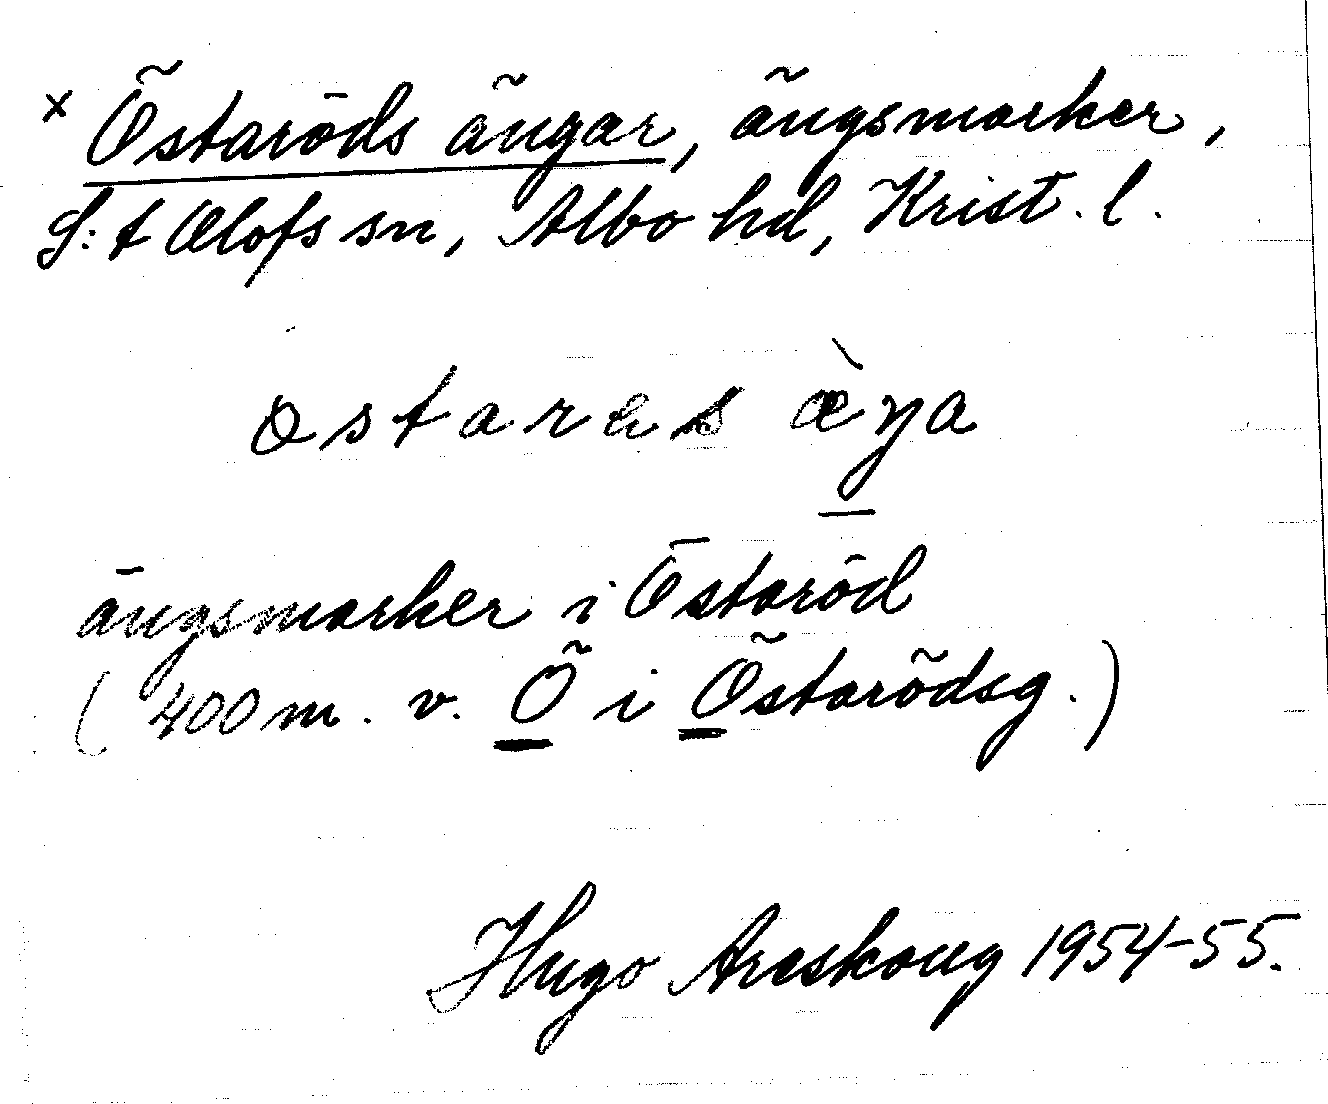 x Östaröds ängar, ängsmarker,
S:t Olofs sn, Albo hd, Krist. l.
ostares æ̀ŋa
ängsmarker i Östaröd
(400 m. v. Ö i Östarödsg.)
Hugo Areskoug 1954-55.